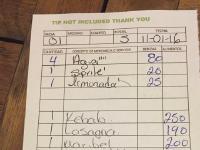 TIP NOT INCLUDED THANK YOU
MESA MESERO CUARTO TOTAL FECHA
01 3 11-01-16
CANTIDAD CONCEPTO BEBIDAS ALIMENTOS
4 Agua 80
1 Sprite 20
1 limonada 25
1 Kebab 250
1 Lasagna 190
200